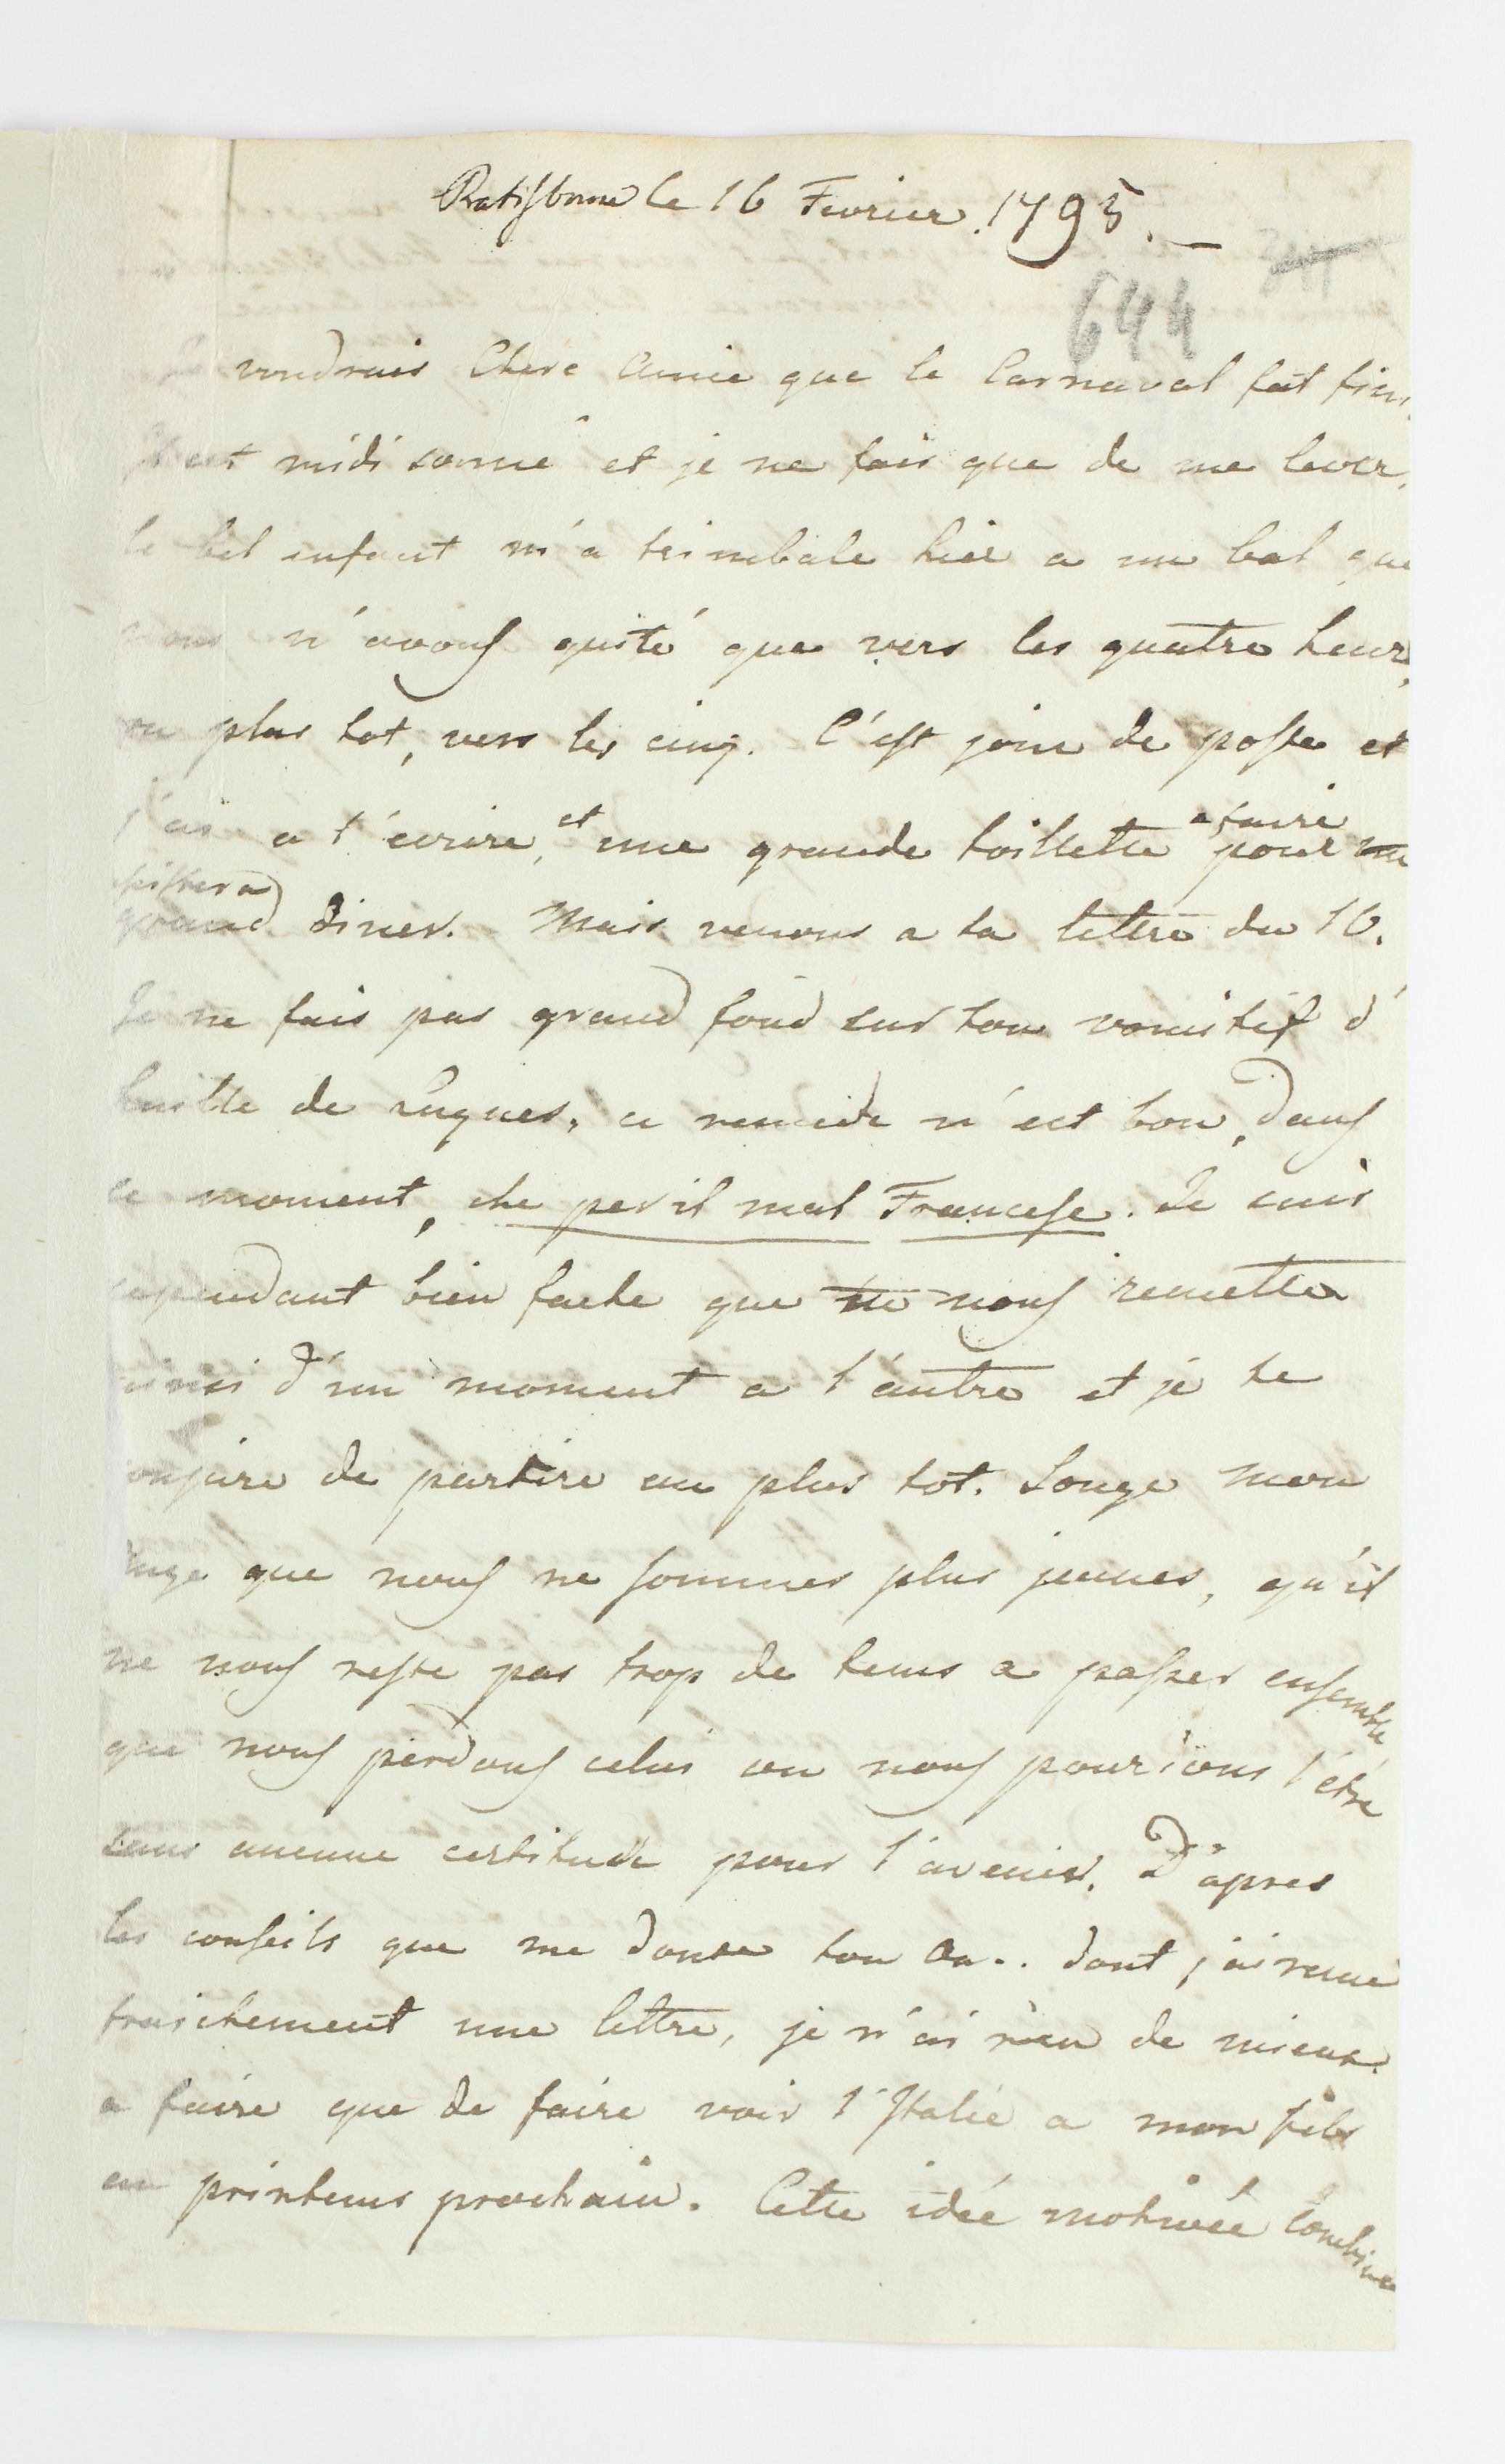 Ratisbonne le 16 Fevrier. 1795. —
344
644
Je voudrais Chere Amie que le Carnaval fut fini,
Il est midi sonné et je ne fais que de me lever.
le bel enfant m'a trimbalé hier a un bal que
nous n'avons quité que vers les quatre heures,
ou plus tot, vers les cinq. C'est jour de poste et
j'ai a t'ecrire, et une grande toillette a faire pour un
grand diner. Mais venons a ta lettre du 10.
Je ne fais pas grand fond sur ton vomitif d'
huille de ce remede n'est bon, dans
ce moment, che per il mal Francese. Je suis
cependant bien fache que tu nous remette
ainsi d'un moment a l'autre et je te
conjure de partire au plus tot. Songe mon
Ange que nous ne sommes plus jeunes, qu'il
ne nous reste pas trop de tems a passer ensemble
que nous perdons celui ou nous pourions l'être
sans aucune certitude pour l'avenir. D'apres
les conseils que me donne ton dont j'ai recue
fraichement une lettre, je n'ai rien de mieux
a faire que de faire voir l'Italie a mon fils
au printems prochain. Cette idée motivée combinée